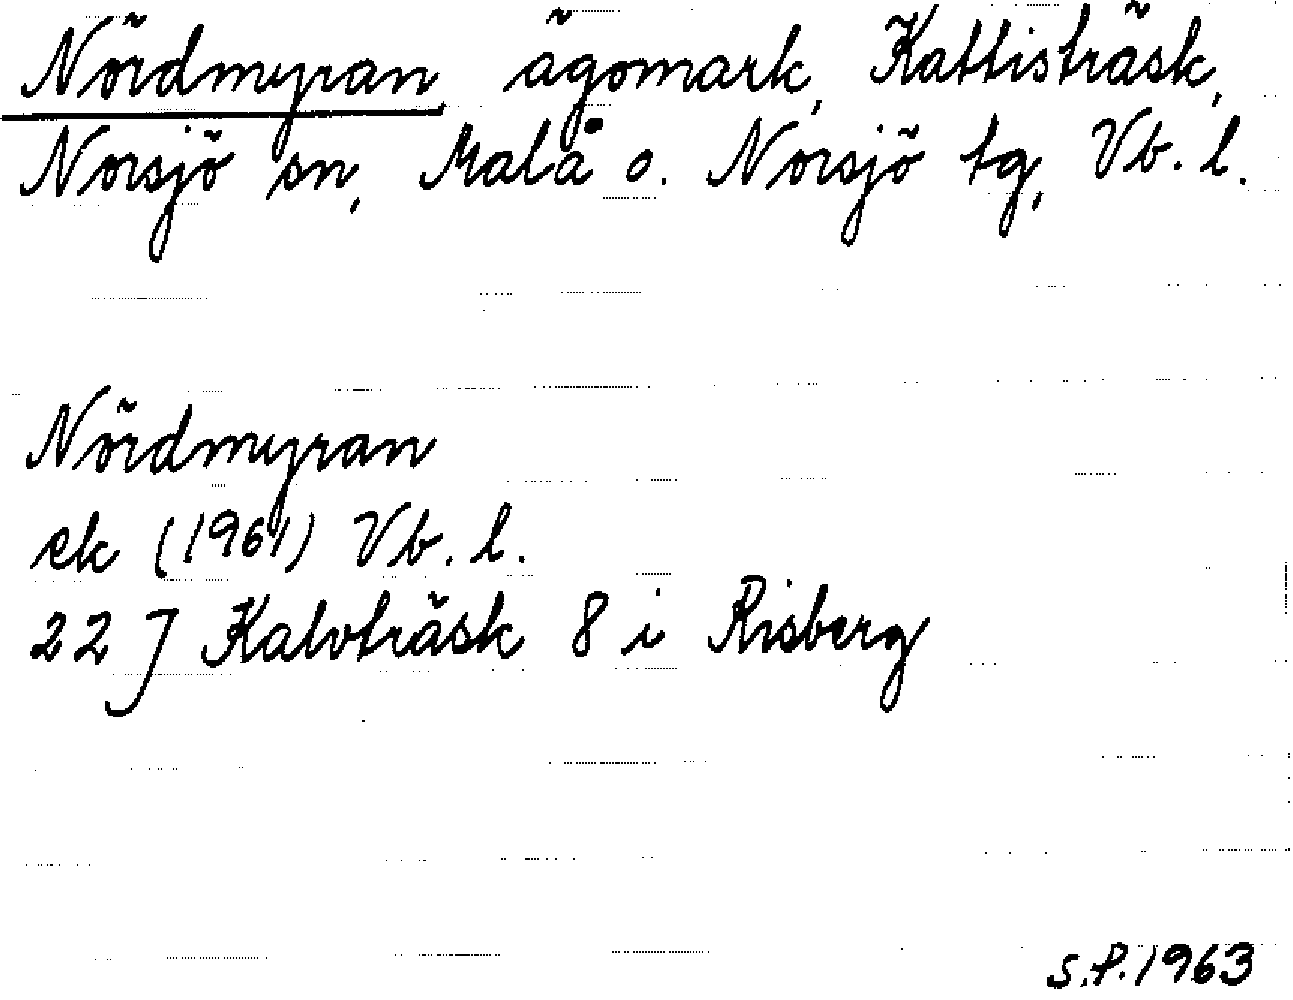 Nördmyran, ägomark, Kattisträsk,
Norsjö sn, Malå o. Norsjö tg, Vb. l.
Nördmyran
ek (1961) Vb. l.
22 J Kalvträsk 8 i Risberg
S.P. 1963